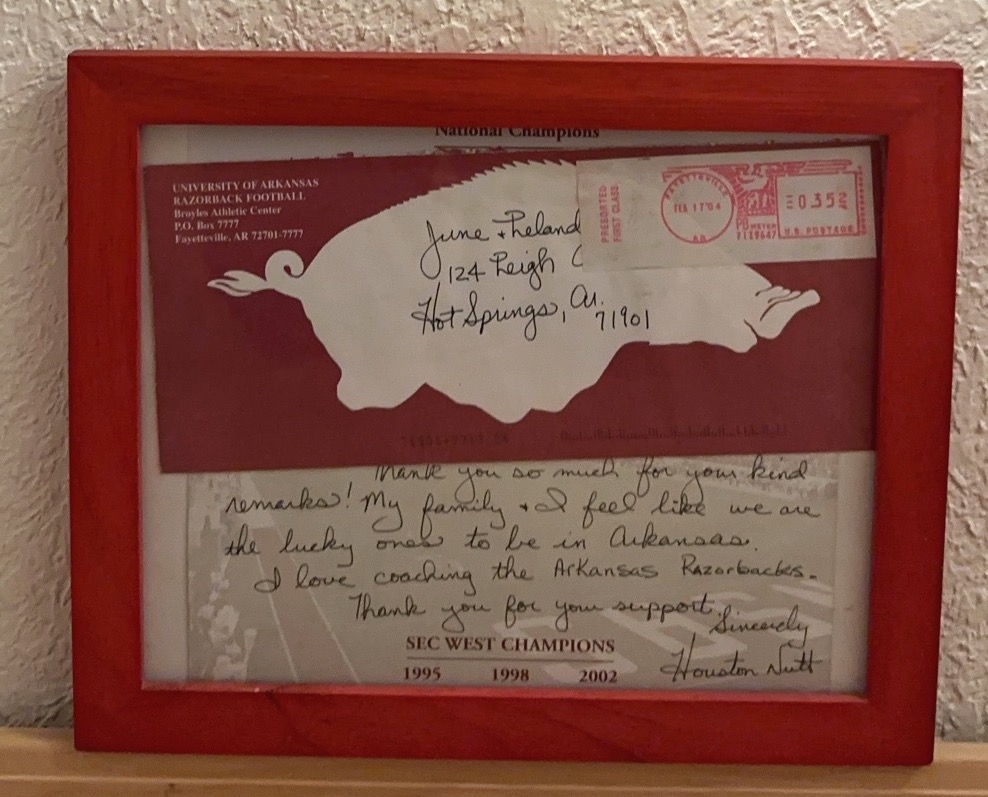 National Champions
UNIVERSITY OF ARKANSAS
RAZORBACK FOOTBALL
Broyles Athletic Center
P.O. Box 7777
Fayetteville, AR 72701-7777
PRESORTED
FIRST CLASS
FAYETTEVILLE
FEB 17'04
AR
0352
PB METER
U.S. POSTAGE
June + Leland
124 Leigh C
Hot Springs, Ar.
71901
Thank you so much for your kind
remarks! My family + I feel like we are
the lucky ones to be in Arkansas.
I love coaching the Arkansas Razorbacks.
Thank you for your support.
Sincerely
Houston Nutt
SEC WEST CHAMPIONS
1995 1998 2002